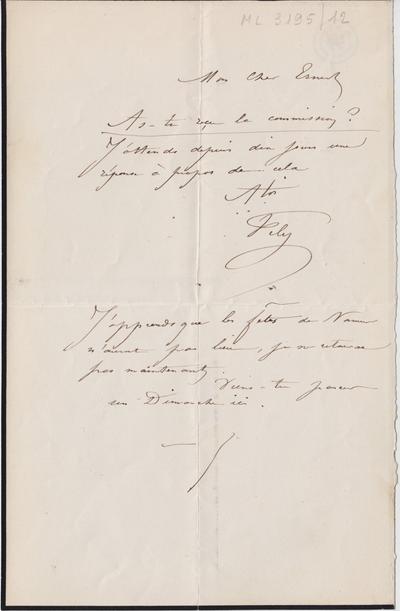 ML 3195/12
Mon cher Ernest
As-tu reçu la commission?
J'attends depuis dix jours une
réponse à propos de cela
A toi
Fély
J'apprends que les fêtes de Namur
n'auront pas lieu, je ne
pas maintenant.
Viens-tu passer
un Dimanche ici.